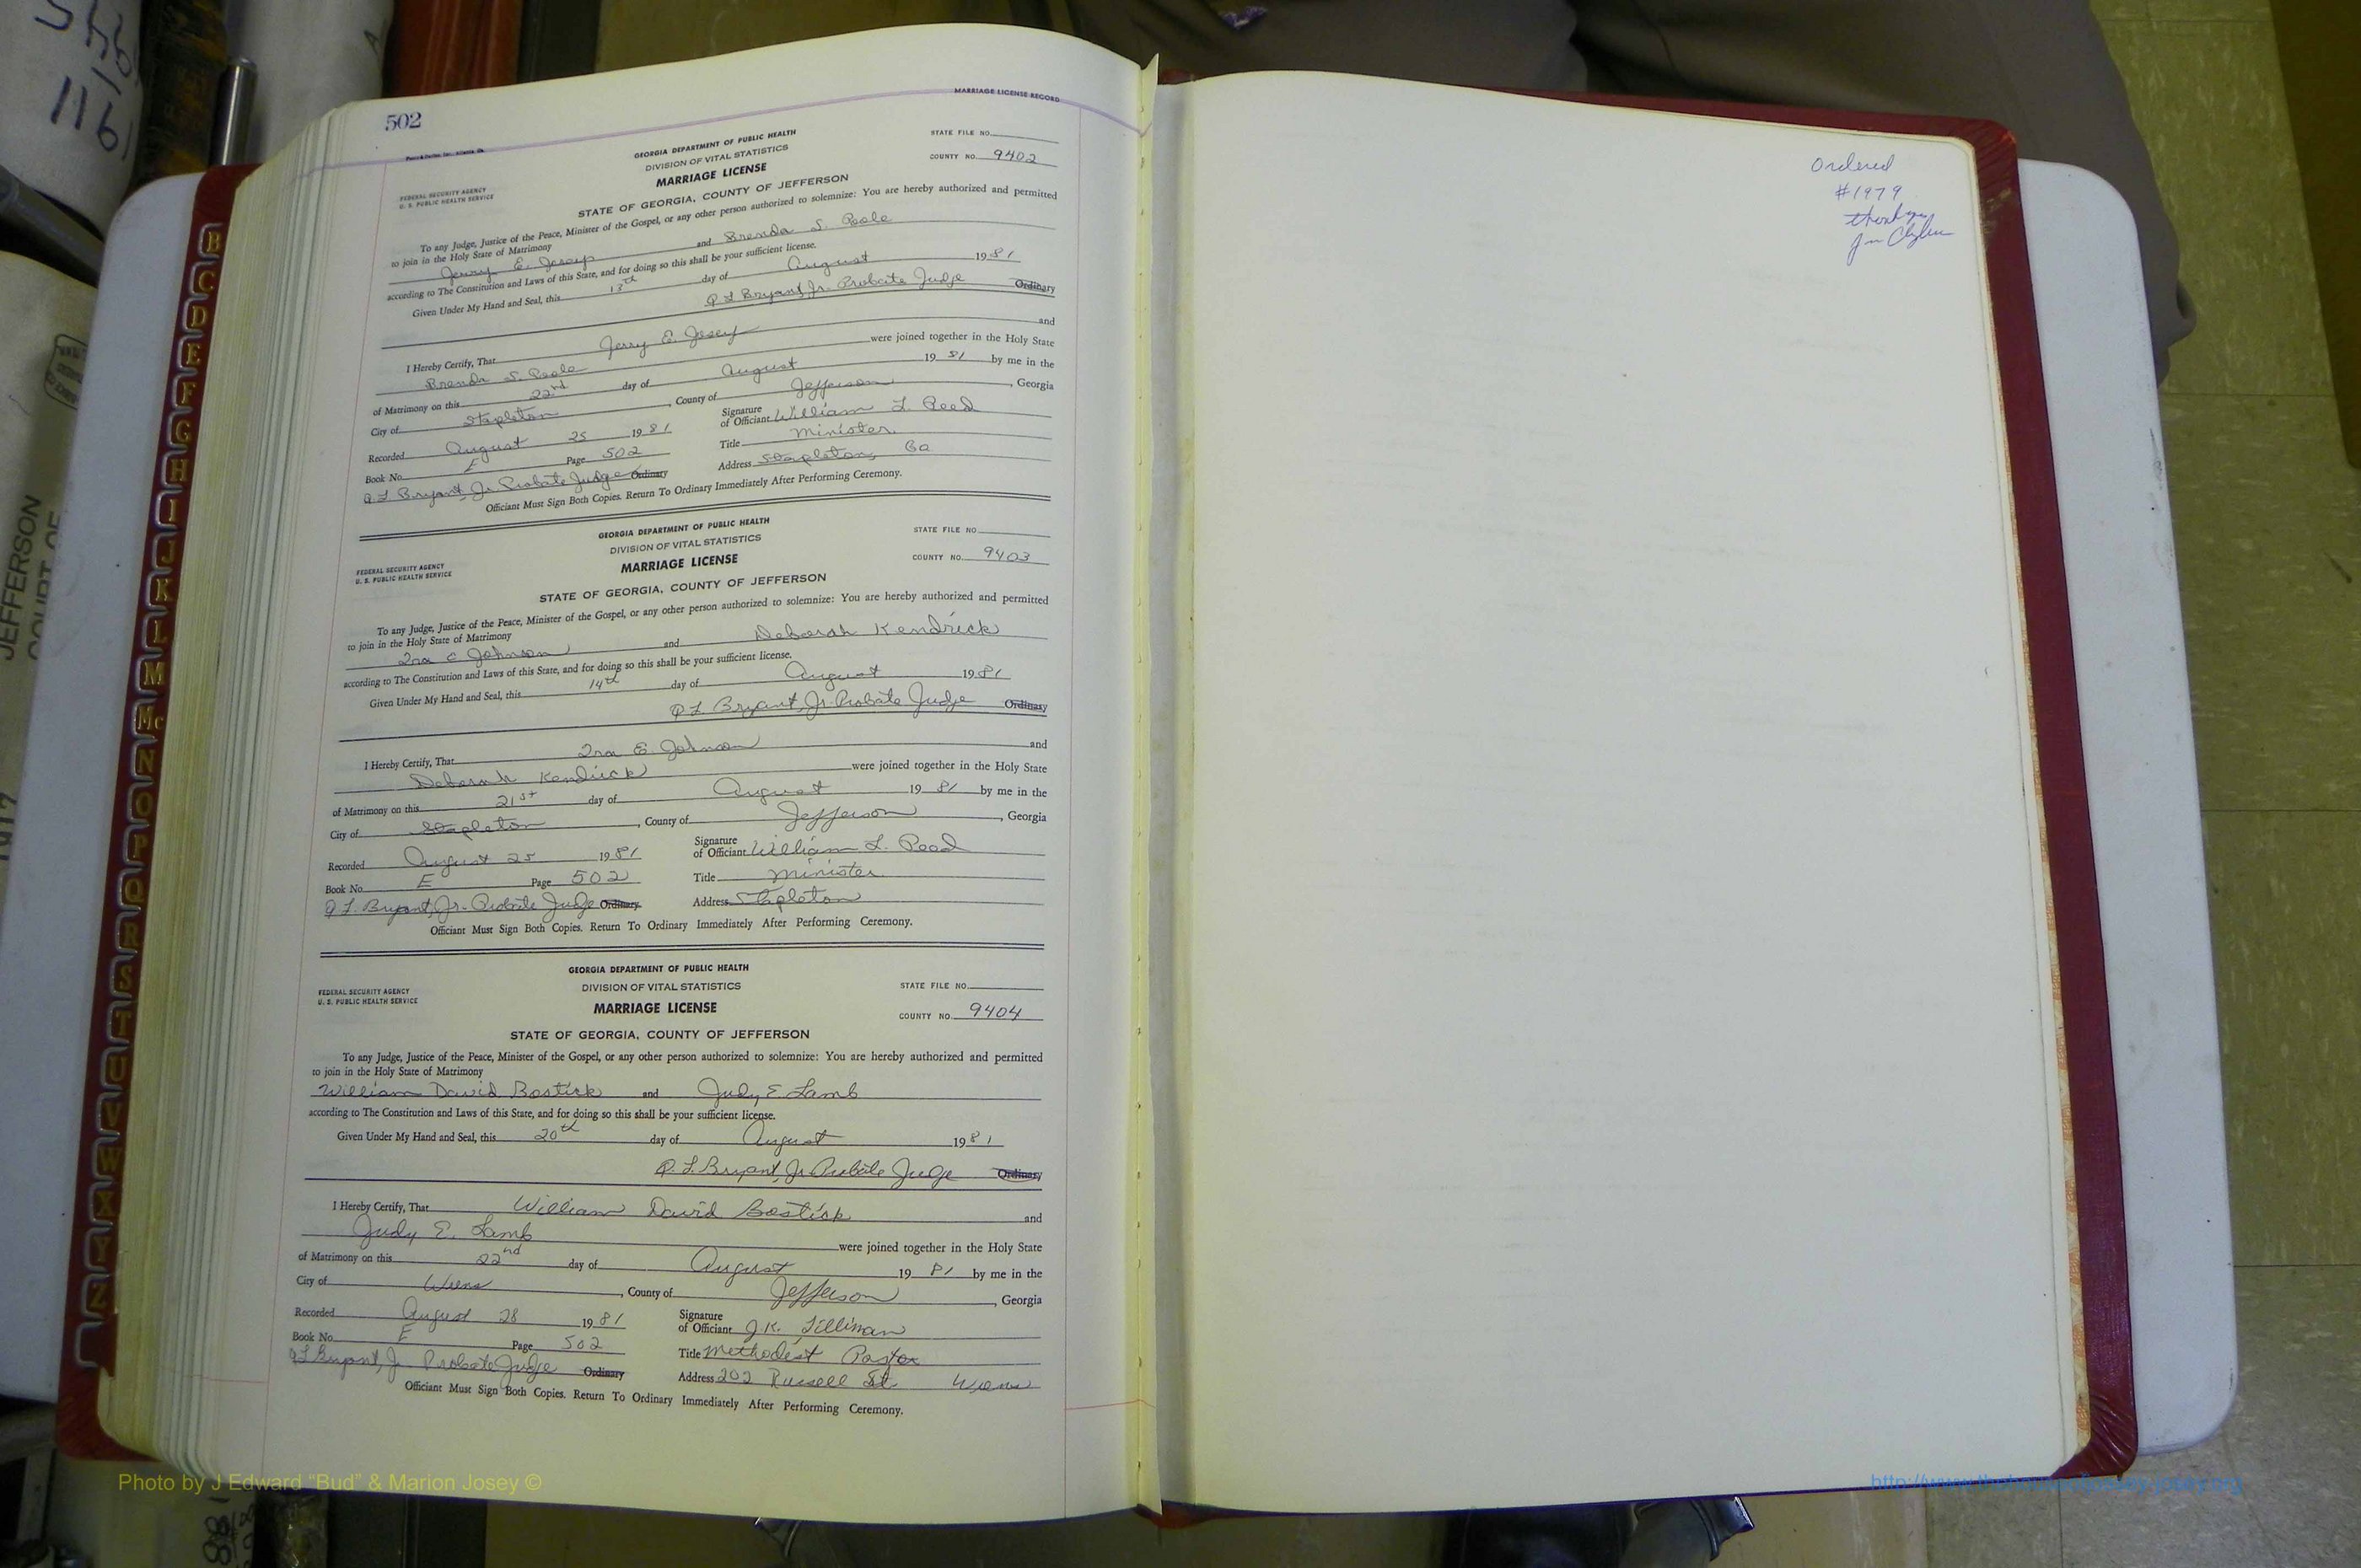 502
MARRIAGE LICENSE RECORD
GEORGIA DEPARTMENT OF PUBLIC HEALTH
DIVISION OF VITAL STATISTICS
MARRIAGE LICENSE
STATE OF GEORGIA, COUNTY OF JEFFERSON
STATE FILE NO.
COUNTY NO. 9402
FEDERAL SECURITY AGENCY
U. S. PUBLIC HEALTH SERVICE
To any Judge, Justice of the Peace, Minister of the Gospel, or any other person authorized to solemnize: You are hereby authorized and permitted
to join in the Holy State of Matrimony
Jerry E. Josey and Brenda S. Poole
according to The Constitution and Laws of this State, and for doing so this shall be your sufficient license.
Given Under My Hand and Seal, this 13th day of August 1981
Q L Bryant, Jr. Probate Judge Ordinary
I Hereby Certify, That Jerry E. Josey and
Brenda S. Poole were joined together in the Holy State
of Matrimony on this 22nd day of August 1981 by me in the
City of Stapleton, County of Jefferson, Georgia
Recorded August 25 1981
Signature of Officiant William L. Reed
Book No. E Page 502
Title Minister
Q L Bryant, Jr. Probate Judge Ordinary
Address Stapleton, Ga
Officiant Must Sign Both Copies. Return To Ordinary Immediately After Performing Ceremony.
GEORGIA DEPARTMENT OF PUBLIC HEALTH
DIVISION OF VITAL STATISTICS
MARRIAGE LICENSE
STATE OF GEORGIA, COUNTY OF JEFFERSON
STATE FILE NO.
COUNTY NO. 9403
FEDERAL SECURITY AGENCY
U. S. PUBLIC HEALTH SERVICE
To any Judge, Justice of the Peace, Minister of the Gospel, or any other person authorized to solemnize: You are hereby authorized and permitted
to join in the Holy State of Matrimony
Ira E Johnson and Deborah Kendrick
according to The Constitution and Laws of this State, and for doing so this shall be your sufficient license.
Given Under My Hand and Seal, this 14th day of August 1981
Q L. Bryant, Jr. Probate Judge Ordinary
I Hereby Certify, That Ira E. Johnson and
Deborah Kendrick were joined together in the Holy State
of Matrimony on this 21st day of August 1981 by me in the
City of Stapleton, County of Jefferson, Georgia
Recorded August 25 1981
Signature of Officiant William L. Reed
Book No. E Page 502
Title Minister
Q L. Bryant, Jr. Probate Judge Ordinary
Address Stapleton
Officiant Must Sign Both Copies. Return To Ordinary Immediately After Performing Ceremony.
GEORGIA DEPARTMENT OF PUBLIC HEALTH
DIVISION OF VITAL STATISTICS
MARRIAGE LICENSE
STATE OF GEORGIA, COUNTY OF JEFFERSON
STATE FILE NO.
COUNTY NO. 9404
FEDERAL SECURITY AGENCY
U. S. PUBLIC HEALTH SERVICE
To any Judge, Justice of the Peace, Minister of the Gospel, or any other person authorized to solemnize: You are hereby authorized and permitted
to join in the Holy State of Matrimony
William David Bostick and Judy E. Lamb
according to The Constitution and Laws of this State, and for doing so this shall be your sufficient license.
Given Under My Hand and Seal, this 20th day of August 1981
Q. L. Bryant, Jr. Probate Judge Ordinary
I Hereby Certify, That William David Bostick and
Judy E. Lamb were joined together in the Holy State
of Matrimony on this 22nd day of August 1981 by me in the
City of Wrens, County of Jefferson, Georgia
Recorded August 28 1981
Signature of Officiant J.K. Tillman
Book No. E Page 502
Title Methodist Pastor
Q L Bryant, Jr. Probate Judge Ordinary
Address 202 Russell St. Wrens
Officiant Must Sign Both Copies. Return To Ordinary Immediately After Performing Ceremony.
Ordered
#1979
B
C
D
E
F
G
H
I
J
K
L
M
Mc
N
O
P
Q
R
S
T
U
V
W
X
Y
Z
JEFFERSON
COURT OF
Photo by J Edward “Bud” & Marion Josey ©